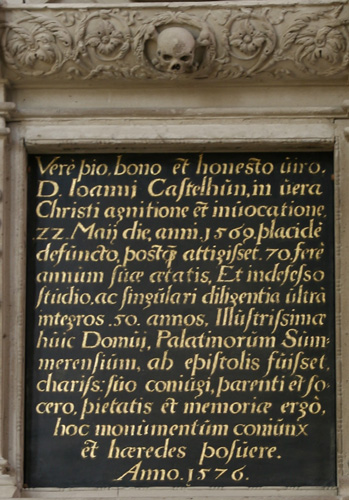 Verè pio, bono et honesto uiro,
D. Ioanni Castelhün, in uera
Christi agnitione et inuocatione,
22. Maij die, anni, 1569, placidè
defuncto, postq̃ attigisset. 70. ferè
annum suæ ætatis, Et indefesso
studio, ac singulari diligentia ultra
integros .50. annos, Illustrissimæ
huic Domuj, Palatinorum Sim-
merensium, ab epistolis fuisset,
chariss: suo coniugi, parenti et so-
cero, pietatis et memoriæ ergò,
hoc monumentum coniunx
et hæredes posuere.
Anno, 1576.